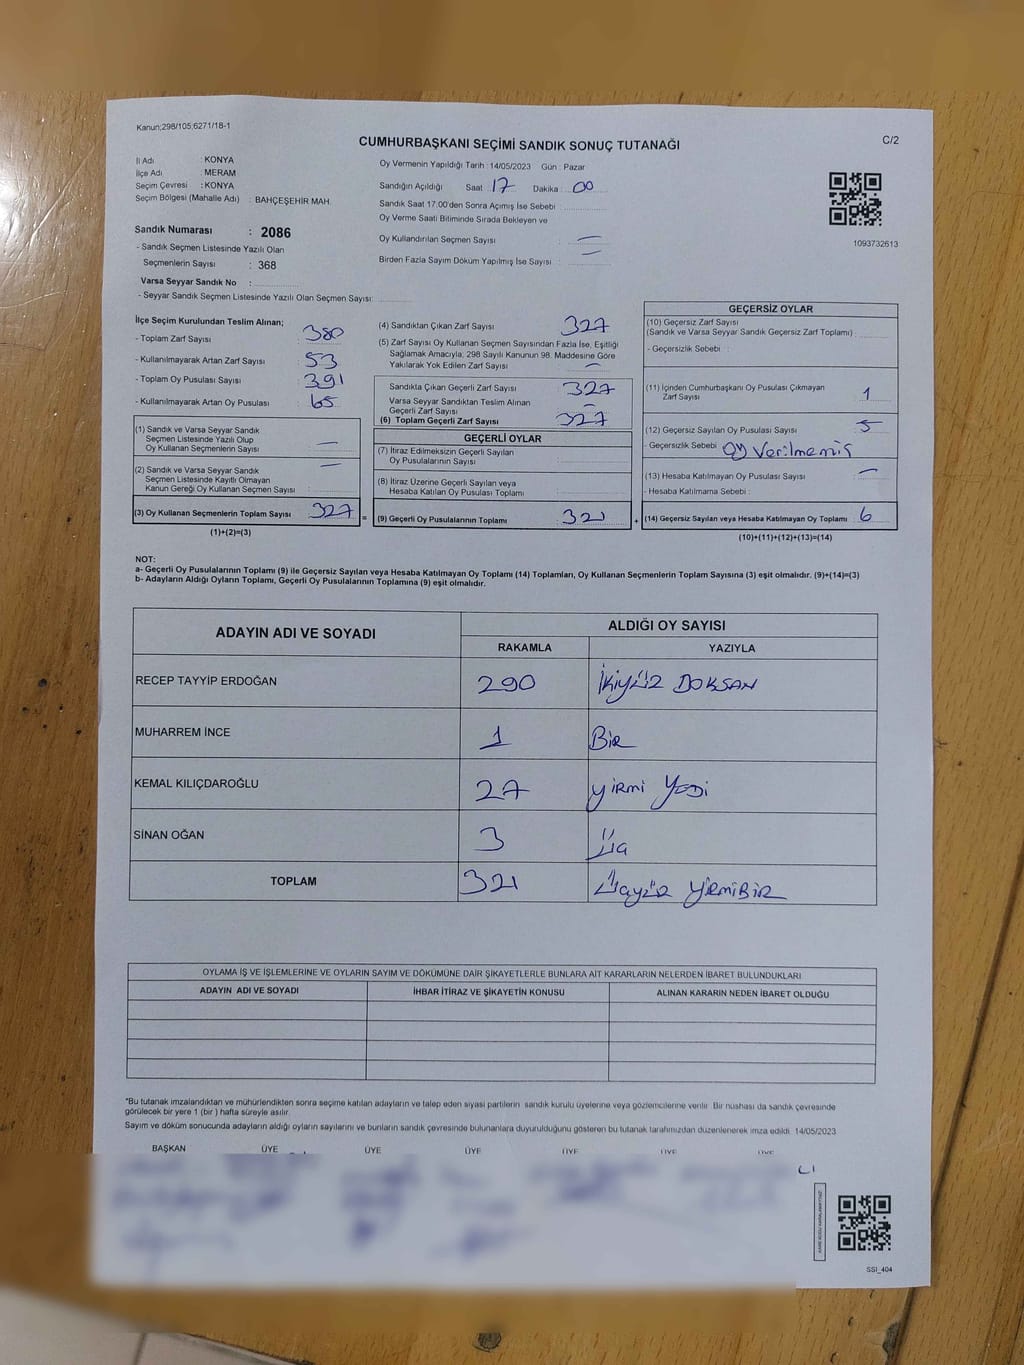 Kanun;298/105;6271/18-1
C/2
CUMHURBAŞKANI SEÇİMİ SANDIK SONUÇ TUTANAĞI
İl Adı : KONYA
İlçe Adı : MERAM
Seçim Çevresi : KONYA
Seçim Bölgesi (Mahalle Adı) : BAHÇEŞEHİR MAH.
Sandık Numarası : 2086
- Sandık Seçmen Listesinde Yazılı Olan
Seçmenlerin Sayısı : 368
Varsa Seyyar Sandık No :
- Seyyar Sandık Seçmen Listesinde Yazılı Olan Seçmen Sayısı:
Oy Vermenin Yapıldığı Tarih : 14/05/2023 Gün : Pazar
Sandığın Açıldığı Saat 17 Dakika : 00
Sandık Saat 17.00'den Sonra Açılmış İse Sebebi :
Oy Verme Saati Bitiminde Sırada Bekleyen ve
Oy Kullandırılan Seçmen Sayısı : —
Birden Fazla Sayım Döküm Yapılmış İse Sayısı : —
1093732613
İlçe Seçim Kurulundan Teslim Alınan;
- Toplam Zarf Sayısı : 380
- Kullanılmayarak Artan Zarf Sayısı : 53
- Toplam Oy Pusulası Sayısı : 391
- Kullanılmayarak Artan Oy Pusulası : 65
(1) Sandık ve Varsa Seyyar Sandık
Seçmen Listesinde Yazılı Olup
Oy Kullanan Seçmenlerin Sayısı : —
(2) Sandık ve Varsa Seyyar Sandık
Seçmen Listesinde Kayıtlı Olmayan
Kanun Gereği Oy Kullanan Seçmen Sayısı : —
(3) Oy Kullanan Seçmenlerin Toplam Sayısı : 327
(1)+(2)=(3)
(4) Sandıktan Çıkan Zarf Sayısı : 327
(5) Zarf Sayısı Oy Kullanan Seçmen Sayısından Fazla İse, Eşitliği
Sağlamak Amacıyla, 298 Sayılı Kanunun 98. Maddesine Göre
Yakılarak Yok Edilen Zarf Sayısı : —
Sandıkta Çıkan Geçerli Zarf Sayısı : 327
Varsa Seyyar Sandıktan Teslim Alınan
Geçerli Zarf Sayısı : —
(6) Toplam Geçerli Zarf Sayısı : 327
GEÇERLİ OYLAR
(7) İtiraz Edilmeksizin Geçerli Sayılan
Oy Pusulalarının Sayısı :
(8) İtiraz Üzerine Geçerli Sayılan veya
Hesaba Katılan Oy Pusulası Toplamı :
= (9) Geçerli Oy Pusulalarının Toplamı : 321 +
GEÇERSİZ OYLAR
(10) Geçersiz Zarf Sayısı
(Sandık ve Varsa Seyyar Sandık Geçersiz Zarf Toplamı) :
- Geçersizlik Sebebi :
(11) İçinden Cumhurbaşkanı Oy Pusulası Çıkmayan
Zarf Sayısı : 1
(12) Geçersiz Sayılan Oy Pusulası Sayısı : 5
- Geçersizlik Sebebi : Oy Verilmemiş
(13) Hesaba Katılmayan Oy Pusulası Sayısı : —
- Hesaba Katılmama Sebebi :
(14) Geçersiz Sayılan veya Hesaba Katılmayan Oy Toplamı : 6
(10)+(11)+(12)+(13)=(14)
NOT:
a- Geçerli Oy Pusulalarının Toplamı (9) ile Geçersiz Sayılan veya Hesaba Katılmayan Oy Toplamı (14) Toplamları, Oy Kullanan Seçmenlerin Toplam Sayısına (3) eşit olmalıdır. (9)+(14)=(3)
b- Adayların Aldığı Oyların Toplamı, Geçerli Oy Pusulalarının Toplamına (9) eşit olmalıdır.
ADAYIN ADI VE SOYADI ALDIĞI OY SAYISI
RAKAMLA YAZIYLA
RECEP TAYYİP ERDOĞAN 290 İkiyüz DOKSAN
MUHARREM İNCE 1 Bir
KEMAL KILIÇDAROĞLU 27 yirmi Yedi
SİNAN OĞAN 3 Üç
TOPLAM 321 Üçyüz YirmiBir
OYLAMA İŞ VE İŞLEMLERİNE VE OYLARIN SAYIM VE DÖKÜMÜNE DAİR ŞİKAYETLERLE BUNLARA AİT KARARLARIN NELERDEN İBARET BULUNDUKLARI
ADAYIN ADI VE SOYADI İHBAR İTİRAZ VE ŞİKAYETİN KONUSU ALINAN KARARIN NEDEN İBARET OLDUĞU
"Bu tutanak imzalandıktan ve mühürlendikten sonra seçime katılan adayların ve talep eden siyasi partilerin sandık kurulu üyelerine veya gözlemcilerine verilir. Bir nüshası da sandık çevresinde
görülecek bir yere 1 (bir ) hafta süreyle asılır.
Sayım ve döküm sonucunda adayların aldığı oyların sayılarını ve bunların sandık çevresinde bulunanlara duyurulduğunu gösteren bu tutanak tarafımızdan düzenlenerek imza edildi. 14/05/2023
BAŞKAN ÜYE ÜYE ÜYE ÜYE ÜYE ÜYE
SSI_404